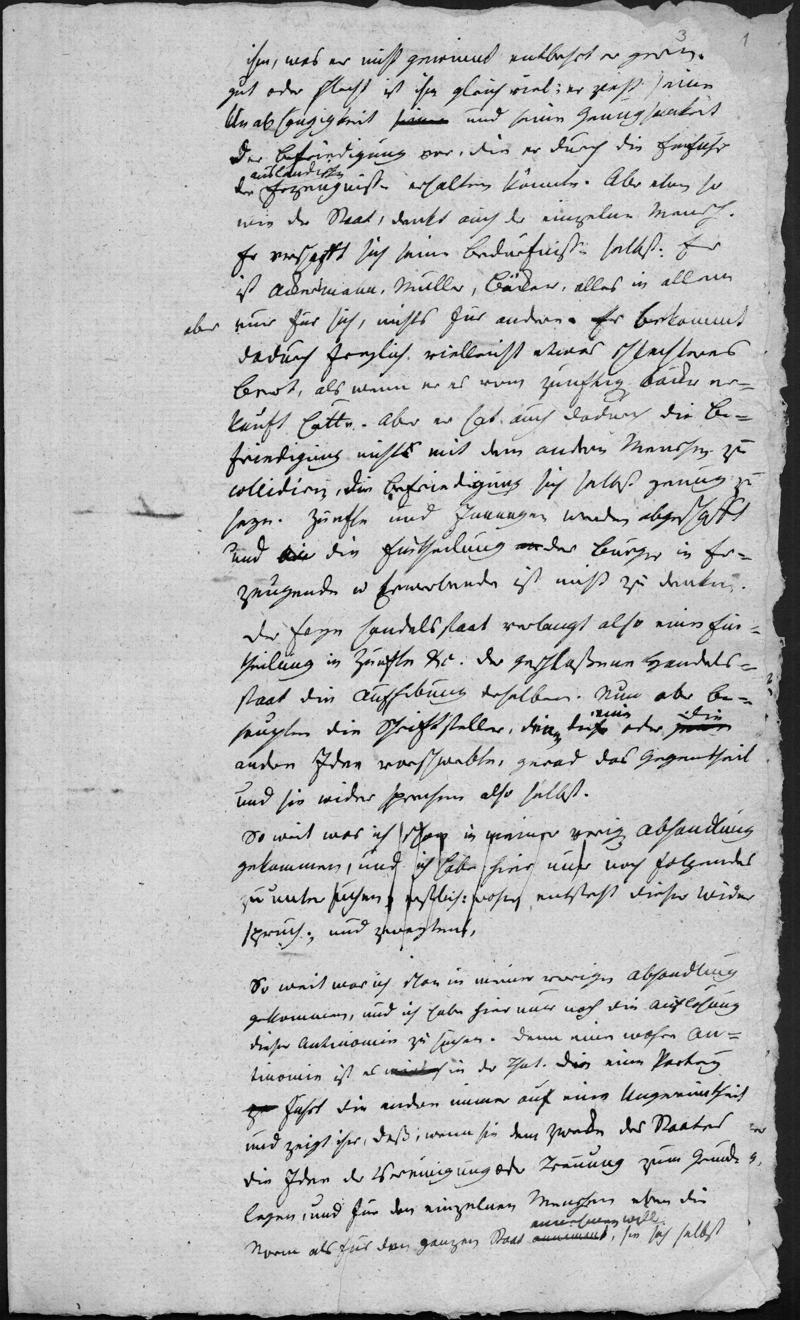 3 1
ihm, was er nicht gewinnt entbehrt er gern.
gut oder schlecht ist ihm gleich viel; er zieht seine
Unabhängigkeit seine und seine Genugsamkeit
der Befriedigung vor, die er durch die Einfuhr
ausländischer
der Erzeugnisse erhalten könnte. Aber eben so
wie der Staat, denkt auch der einzelne Mensch.
Er verschafft sich seine Bedürfnisse selbst. Er
ist Ackermann, Müller, Bäcker, alles in allem
aber nur für sich, nichts für andere. Er bekommt
dadurch freylich vielleicht etwas schlechteres
Brot, als wenn er es vom zunftig Bäcker er-
kauft hätte. Aber er hat auch dadurch die Be-
friedigung nichts mit dem andern Menschen zu
collidiren, die Befriedigung sich selbst genug zu
seyn. Zünfte und Innungen werden abgeschafft
und die die Eintheilung der Bürger in Er-
zeugende u Erwerbende ist nicht zu denken.
Der freye Handelsstaat verlangt also eine Ein-
theilung in Zünfte &c. der geschloßene Handels-
staat die Aufhebung derselben. Nun aber be-
haupten die Schriftsteller, denen diese oder
eine die
andere Idee vorschwebte, gerad das Gegentheil
und sie widersprechen also selbst.
So weit war ich schon in meiner vorig Abhandlung
gekommen, und ich habe hier nur noch folgendes
zu untersuchen, erstlich: woher entsteht dieser Wider
spruch; und zweytens,
So weit war ich schon in meiner vorigen Abhandlung
gekommen, und ich habe hier nur noch die Auflösung
dieser Antinomie zu suchen. Denn eine wahre An-
tinomie ist es in der That. Die eine Parthey
zu führt die andere immer auf eine Ungereimtheit
und zeigt ihr, daß, wenn sie dem Zwecke des Staates
die Idee der Vereinigung oder Trennung zum Grunde
legen, und für den einzelnen Menschen eben die
annehmen will
Norm als für den ganzen Staat annimmt, sie sich selbst